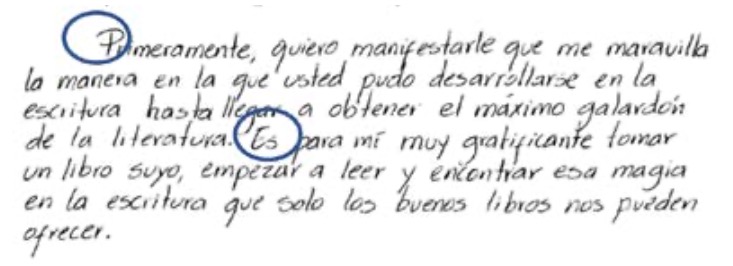 Primeramente, quiero manifestarle que me maravilla
la manera en la que usted pudo desarrollarse en la
escritura hasta llegar a obtener el máximo galardón
de la literatura. Es para mí muy gratificante tomar
un libro suyo, empezar a leer y encontrar esa magia
en la escritura que solo los buenos libros nos pueden
ofrecer.